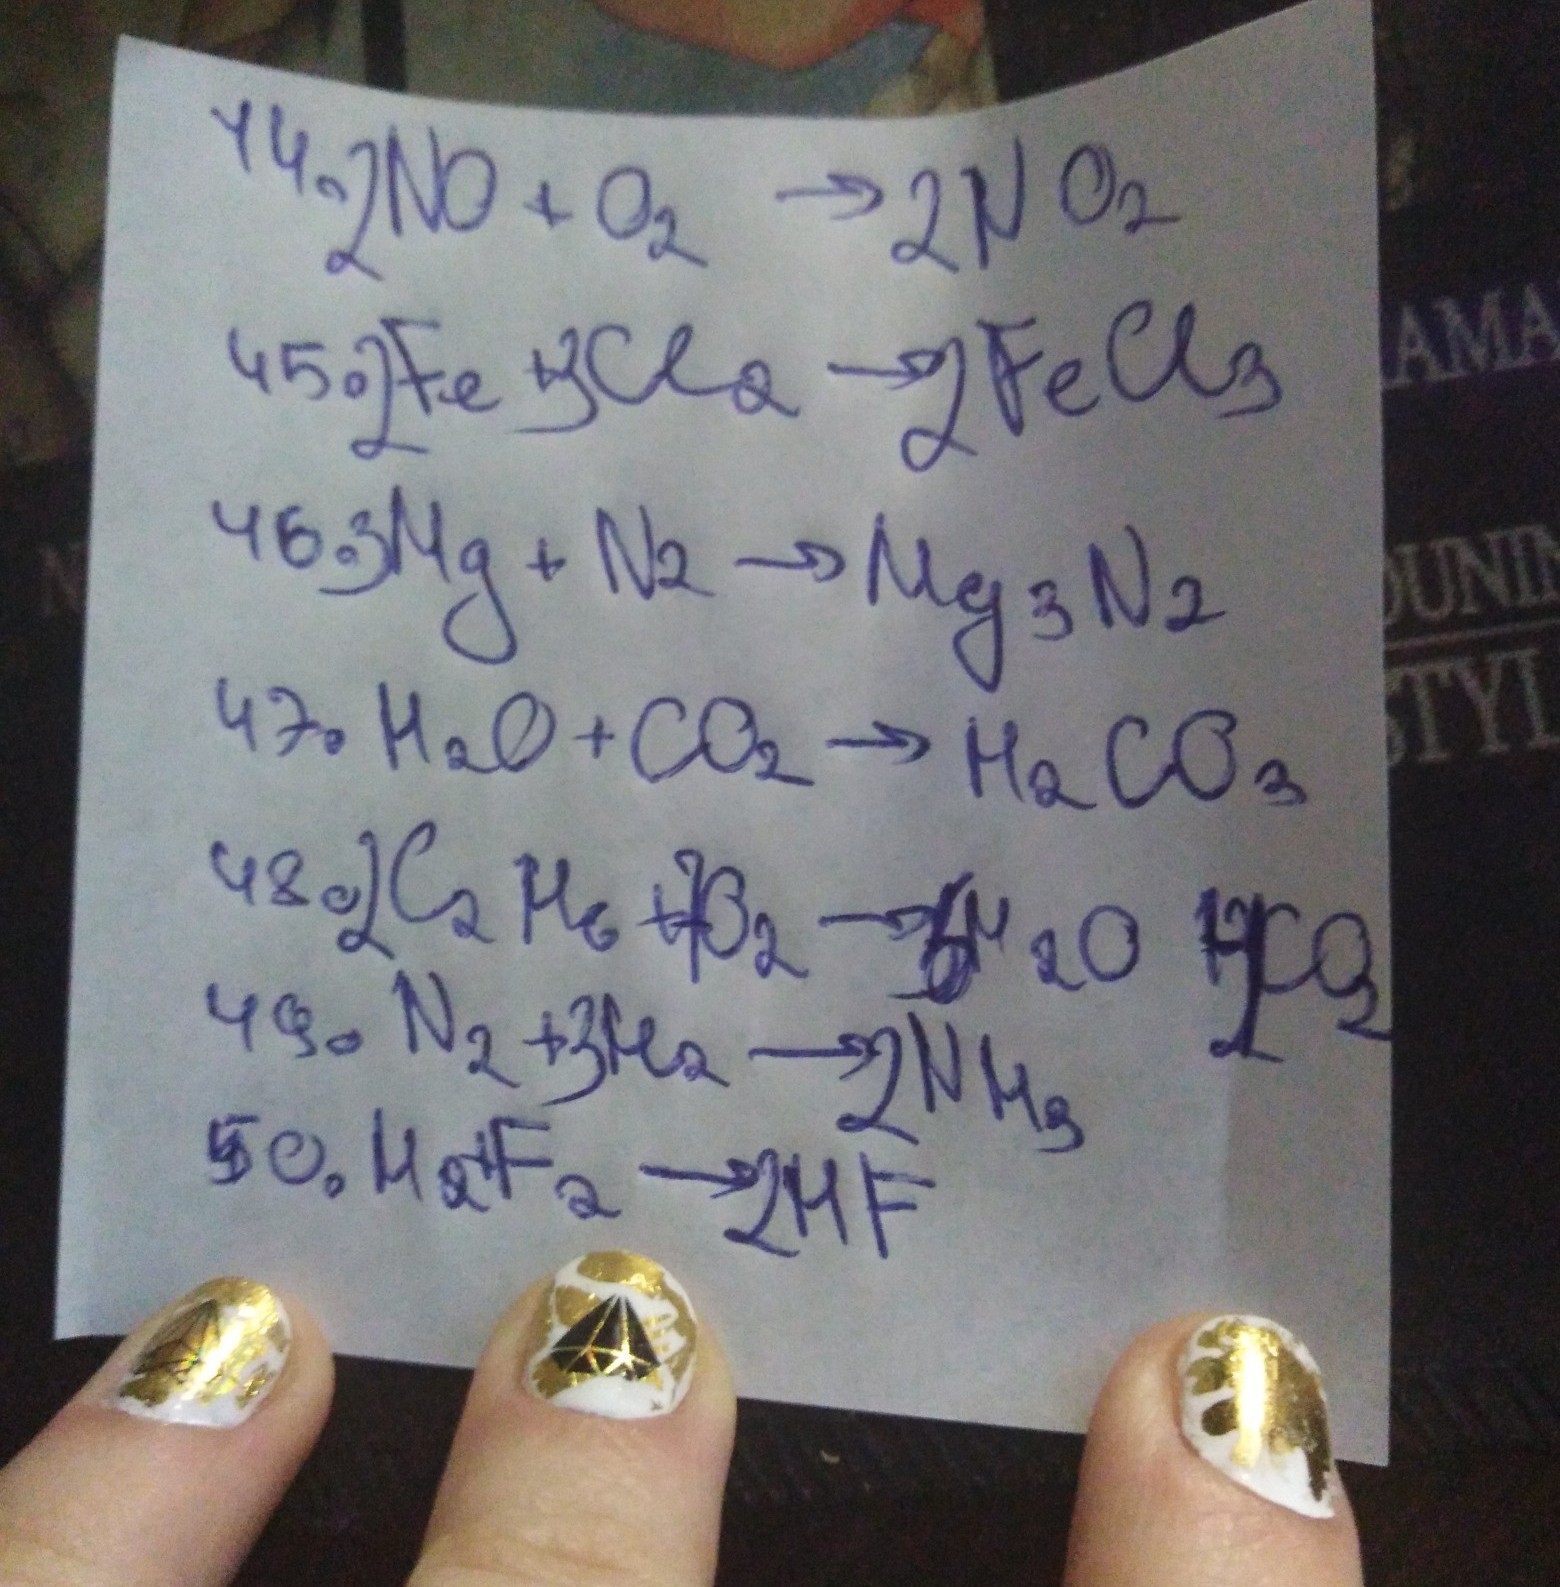 44. 2NO + O2 → 2NO2
45. 2Fe + 3Cl2 → 2FeCl3
46. 3Mg + N2 → Mg3N2
47. H2O + CO2 → H2CO3
48. 2C2H6 + 7O2 → 6H2O CO2
49. N2 + 3H2 → 2NH3
50. H2 + F2 → 2HF
AMA
OUNIN
STYL